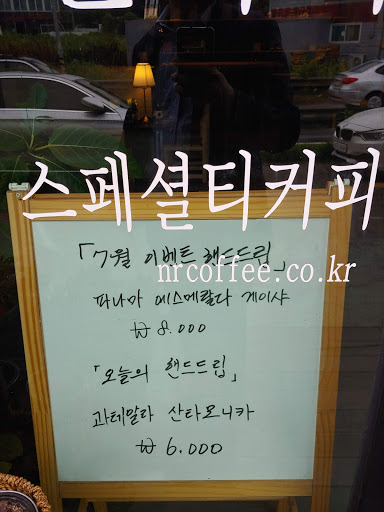 스페셜티커피
「7월 이벤트 핸드드립」
nrcoffee.co.kr
파나마 에스메랄다 게이샤
₩ 8.000
「오늘의 핸드드립」
과테말라 산타모니카
₩ 6.000